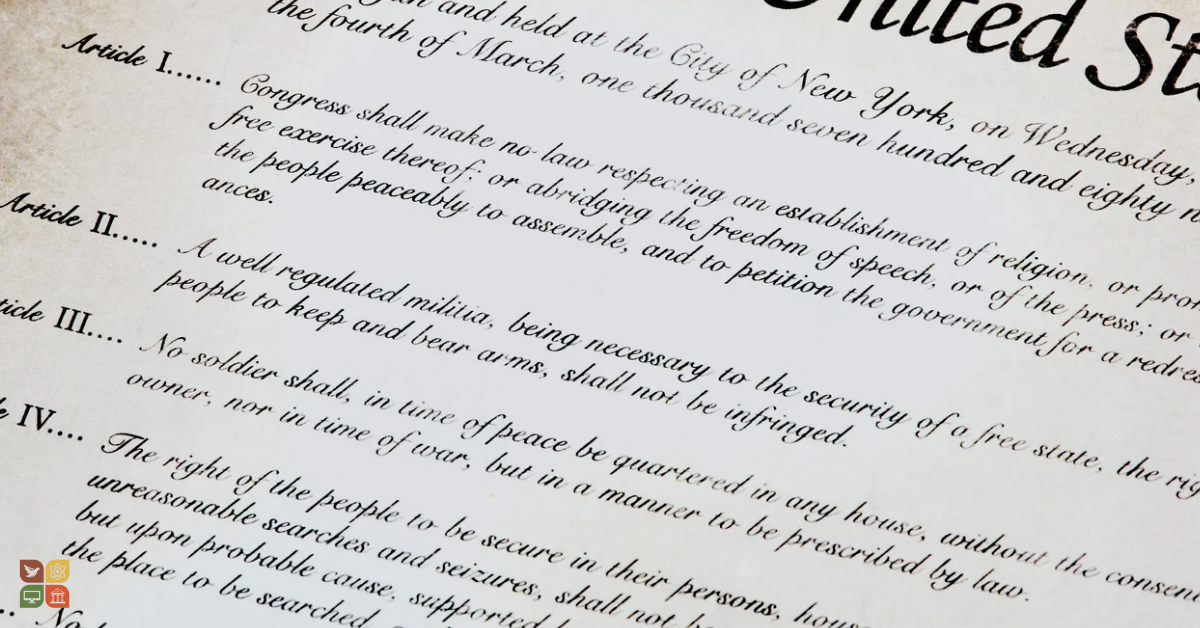 United
and held at the City of New York, on Wednesday,
the fourth of March, one thousand seven hundred and eighty
Article I......
Congress shall make no law respecting an establishment of religion, or
free exercise thereof: or abridging the freedom of speech, or of the press; or
the people peaceably to assemble, and to petition the government for a
ances.
Article II.....
A well regulated militia, being necessary to the security of a free state, the
people to keep and bear arms, shall not be infringed.
III....
No soldier shall, in time of peace be quartered in any house, without the
owner, nor in time of war, but in a manner to be prescribed by law.
IV....
The right of the people to be secure in their persons,
unreasonable searches and seizures, shall not
but upon probable cause, supported
the place to be searched,
No